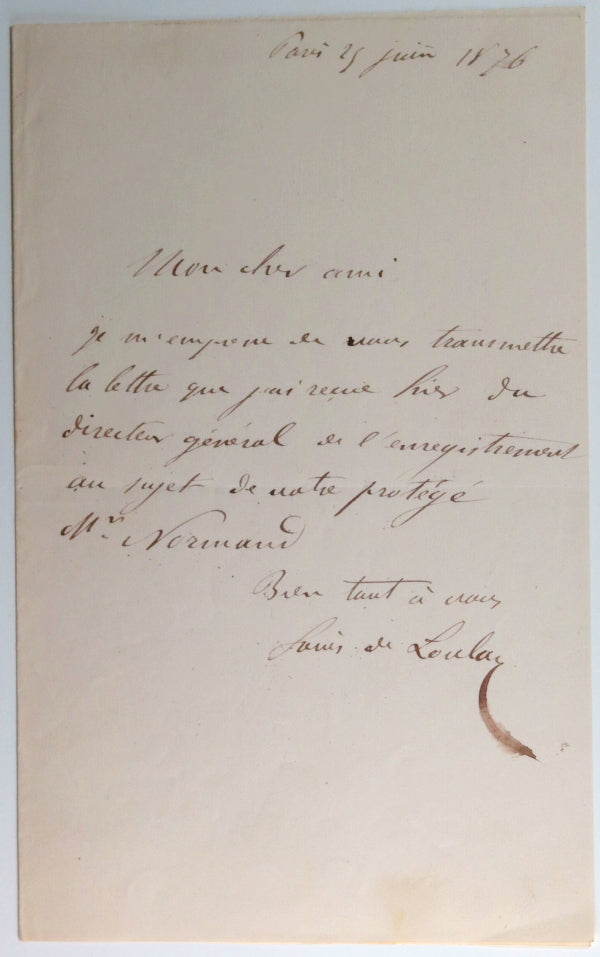 Paris 25 juin 1876
Mon cher ami
je m'empresse de vous transmettre
la lettre que j'ai reçue hier du
directeur général de l'enregistrement
au sujet de notre protégé
Mr Normand
Bien tout à vous
Louis de Loulay